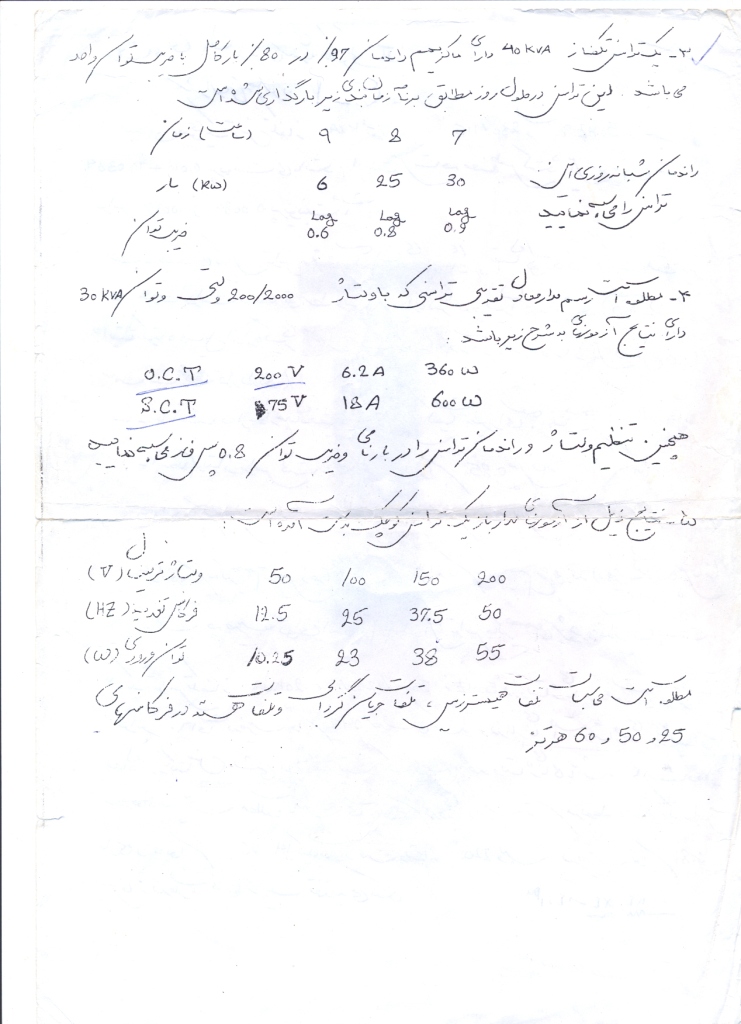 ۳- یک ترانس تکفاز 40 KVA دارای ماکزیمم راندمان 97٪ در 80٪ بار کامل با ضریب توان واحد
می باشد. این ترانس در طول روز مطابق برنامه زمان بندی زیر بارگذاری شده است
7 8 9 (ساعت) زمان
30 25 6 (KW) بار
0.9 Lag 0.8 Lag 0.6 Lag ضریب توان
راندمان شبانه روزی این
ترانس را محاسبه نمایید
۴- مطلوب است رسم مدار معادل تقریبی ترانسی که با ولتاژ 200/2000 ولتی و توان 30 KVA
دارای نتایج آزمونهای به شرح زیر باشد:
O.C.T 200 V 6.2 A 360 W
S.C.T 75 V 18 A 600 W
همچنین تنظیم ولتاژ و راندمان ترانس را در بار نامی و ضریب توان 0.8 پس فاز محاسبه نمایید
۵- نتایج ذیل از آزمونهای مدار باز یک ترانس کوچک بدست آمده است:
ولتاژ ترمینال (V) 50 100 150 200
فرکانس تغذیه (HZ) 12.5 25 37.5 50
توان ورودی (W) 10.25 23 38 55
مطلوب است محاسبات تلفات هیسترزیس، تلفات جریان گردابی و تلفات هسته در فرکانسهای
25 و 50 و 60 هرتز